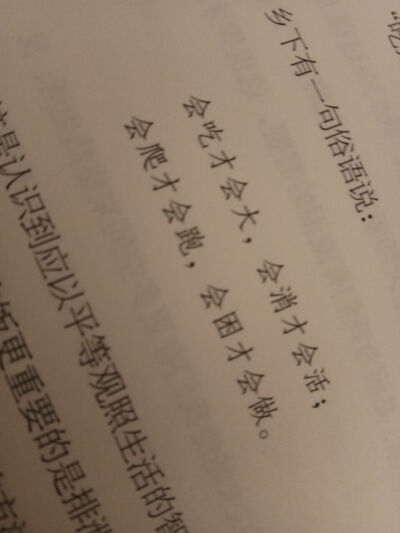 “吃
乡下有一句俗语说：
会吃才会大，会消才会活；
会爬才会跑，会困才会做。
是认识到应以平等观照生活的智
更重要的是排泄